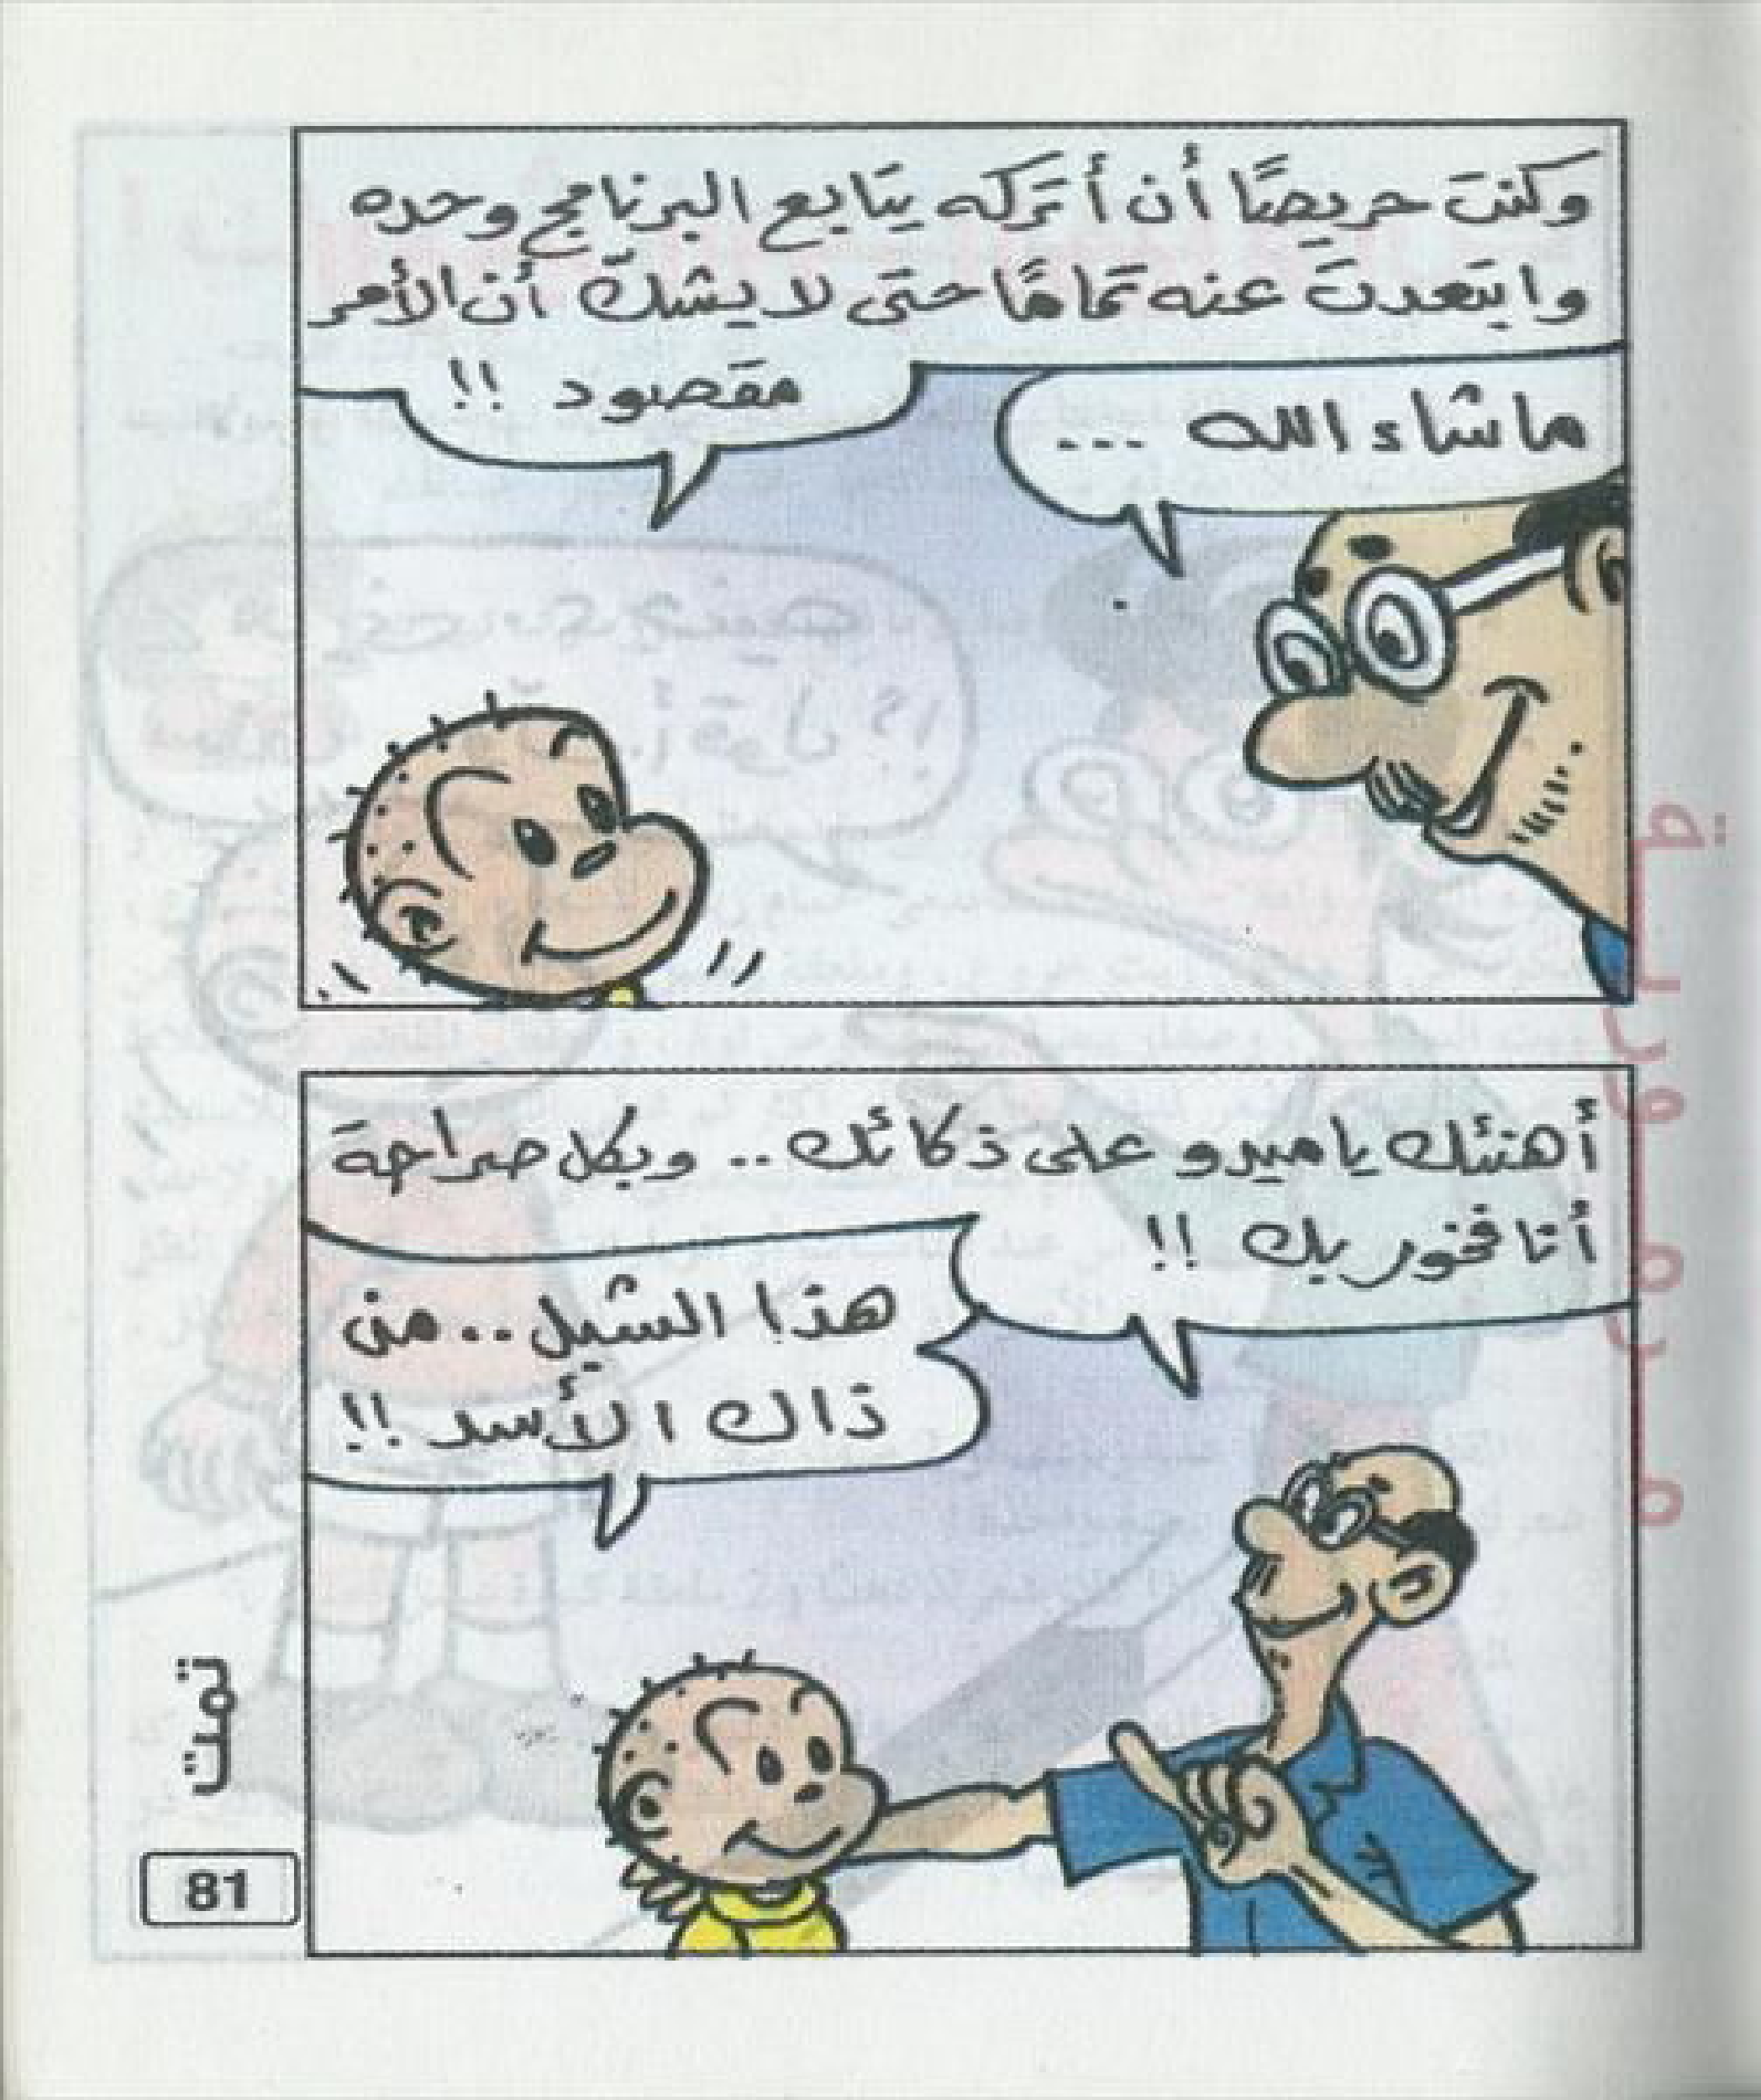 وكنت حريصًا أن أتركه يتابع البرنامج وحده
وابتعدت عنه تمامًا حتى لا يشكّ أن الأمر
مقصود !!
ماشاء الله ...
أهنئك ياميدو على ذكائك .. وبكل صراحة
أنا فخور بك !!
هذا الشبل .. من
ذاك الأسد !!
تمت
81